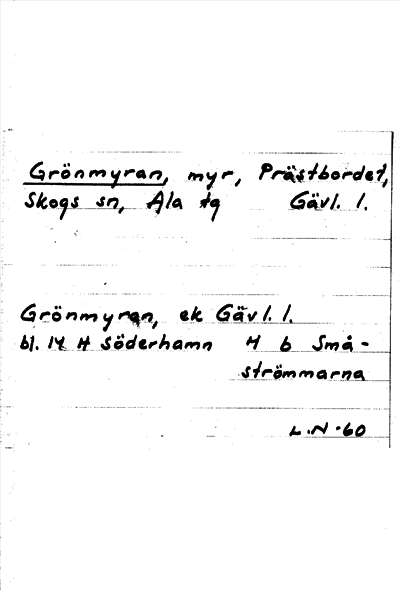 Grönmyran, myr, Prästbordet,
Skogs sn, Ala tg Gävl. l.
Grönmyran, ek Gävl. l.
bl. 14 H Söderhamn 4 b Små-
strömmarna
L.N-60